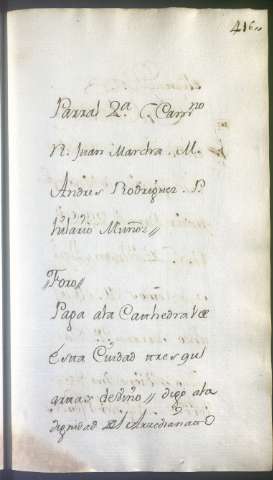 416
Parral 2.ª C. Cam.no
R. Juan Marcha. M.
Andres Rodriguez. P.
hilario Muñoz //
"Foro //
Papa ala Cathedral de
Esta Ciudad tres qui
deuino // digo ala
dignidad del Arcedianato